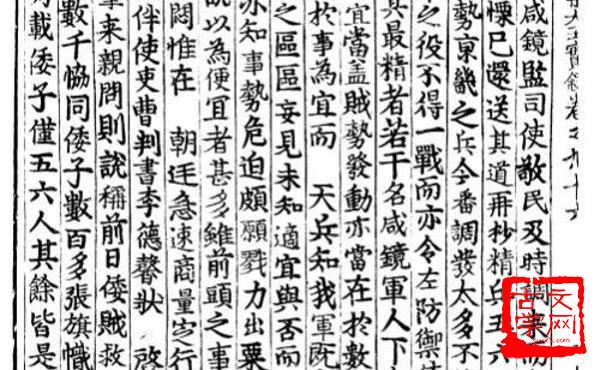 咸鏡監司使敬民及時調來而
慄已還送其道再抄精兵五六
勢京畿之兵今番調發太多不
之役不得一戰而亦令左防禦
其最精者若干名咸鏡軍人下
宜當蓋賊勢發動亦當在於數
於事為宜而 天兵知我軍既
之區區妄見未知適宜與否而
亦知事勢危迫頗願戮力出粟
說以為便宜者甚多雖前頭之事
悶惟在 朝廷急速商量定行
伴使吏曹判書李德馨狀 啓
來親問則說稱前日倭賊救
數千恊同倭子數百多張旗幟
載倭子僅五六人其餘皆是